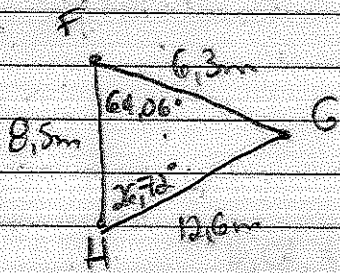 F
6,3m
64,06°
G
8,5m
26,72°
12,6m
H